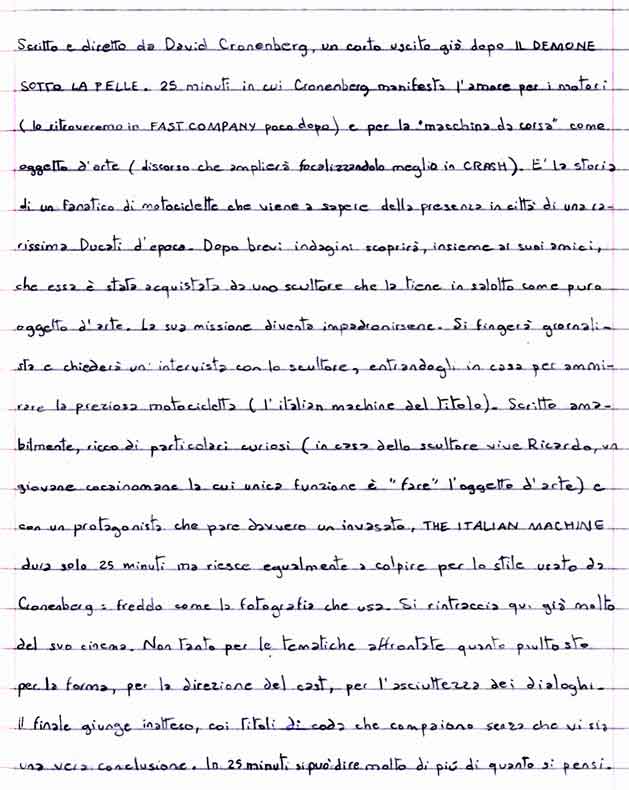 Scritto e diretto da David Cronenberg, un corto uscito già dopo IL DEMONE
SOTTO LA PELLE. 25 minuti in cui Cronenberg manifesta l'amore per i motori
(lo ritroveremo in FAST COMPANY poco dopo) e per la "macchina da corsa" come
oggetto d'arte (discorso che amplierà focalizzandolo meglio in CRASH). E' la storia
di un fanatico di motociclette che viene a sapere della presenza in città di una ra-
rissima Ducati d'epoca. Dopo brevi indagini scoprirà, insieme ai suoi amici,
che essa è stata acquistata da uno scultore che la tiene in salotto come puro
oggetto d'arte. La sua missione diventa impadronirsene. Si fingerà giornali-
sta e chiederà un'intervista con lo scultore, entrandogli in casa per ammi-
rare la preziosa motocicletta (l'italian machine del titolo). Scritto ama-
bilmente, ricco di particolari curiosi (in casa dello scultore vive Ricardo, un
giovane cocainomane la cui unica funzione è "fare" l'oggetto d'arte) e
con un protagonista che pare davvero un invasato, THE ITALIAN MACHINE
dura solo 25 minuti ma riesce egualmente a colpire per lo stile usato da
Cronenberg: freddo come la fotografia che usa. Si rintraccia qui già molto
del suo cinema. Non tanto per le tematiche affrontate quanto piuttosto
per la forma, per la direzione del cast, per l'asciuttezza dei dialoghi.
Il finale giunge inatteso, coi titoli di coda che compaiono senza che vi sia
una vera conclusione. In 25 minuti si può dire molto di più di quanto si pensi.